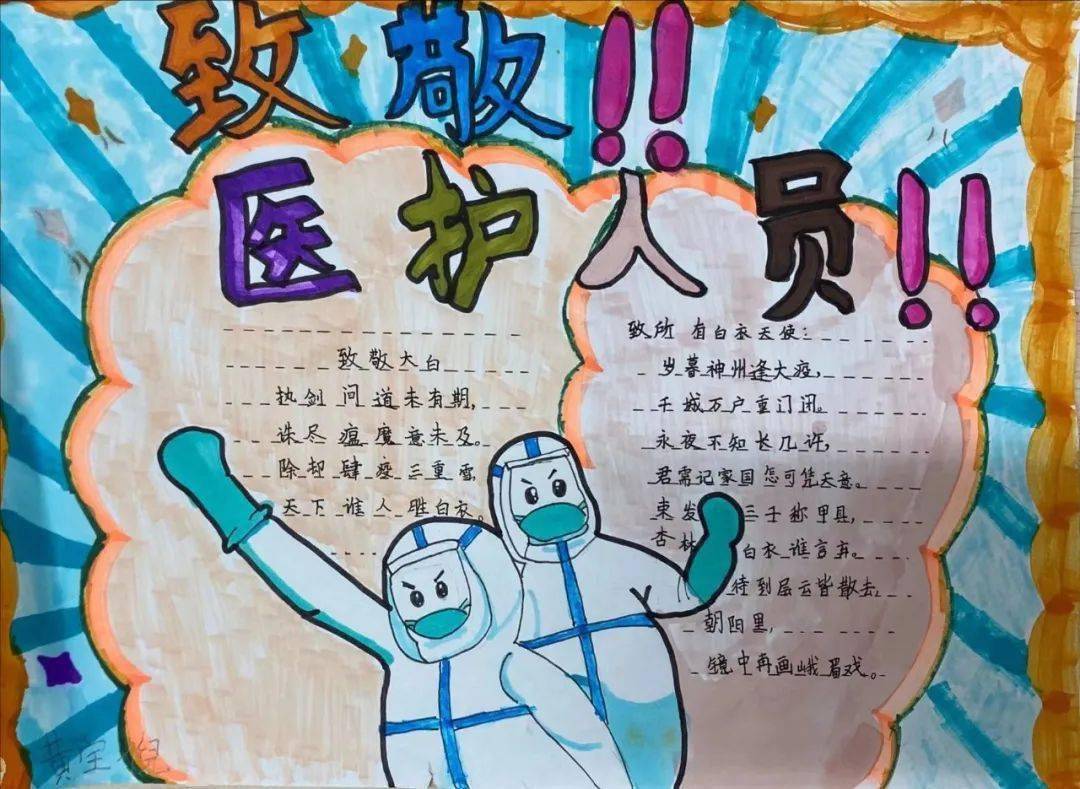 致敬!!
医护人员!!
致敬大白
执剑问道未有期,
诛尽瘟魔意未及。
除却肆疫三重雪,
天下谁人胜白衣。
致所有白衣天使:
岁暮神州逢大疫,
千城万户重门闭。
永夜不知长几许,
君需记家国怎可凭天意。
束发三千称甲具,
杏林白衣谁言弃。
待到层云皆散去,
朝阳里,
镜中再画峨眉戏。
黄